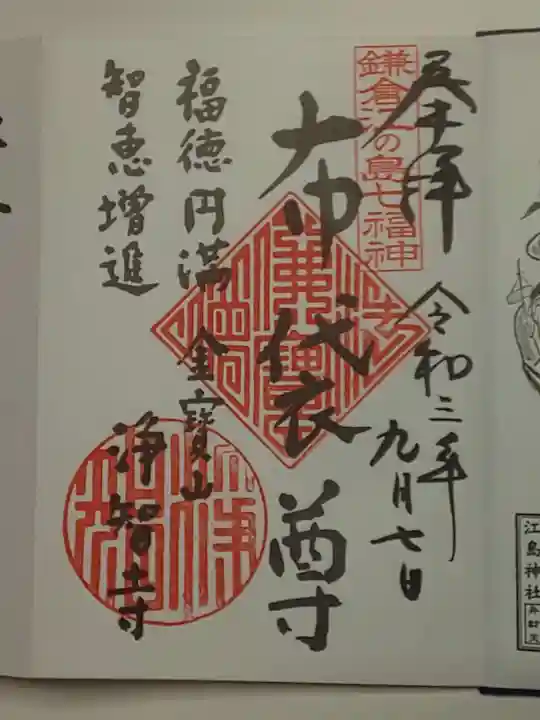 奉拝
鎌倉江の島七福神
令和三年
九月七日
布袋尊
福徳円満
智恵増進
金寶山
浄智寺
江島神社